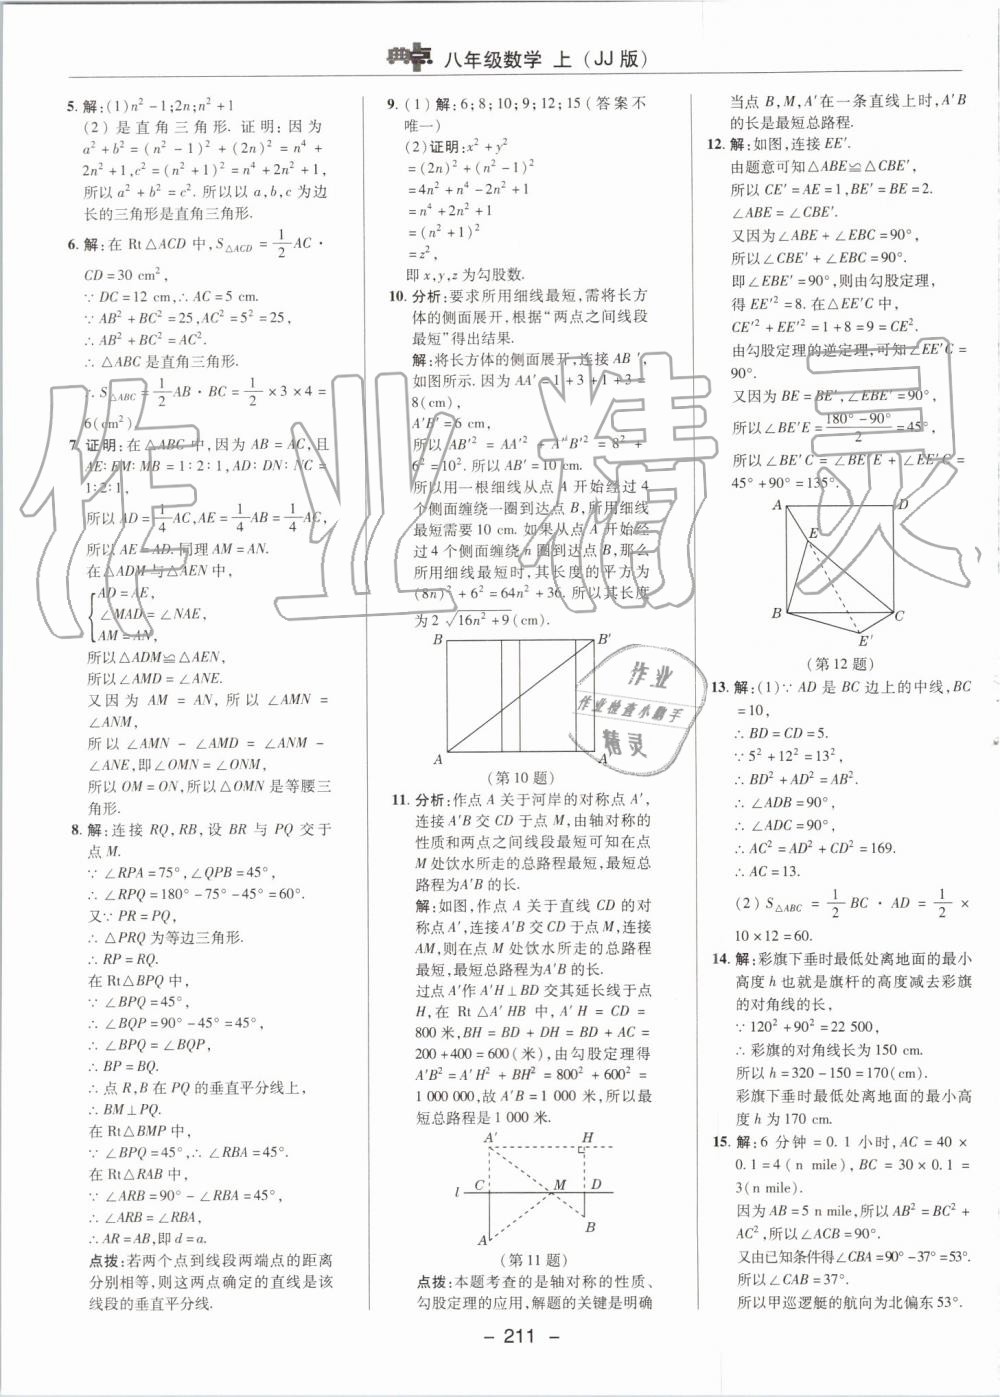 典点 八年级数学 上(JJ版)
5. 解:(1)n²-1;2n;n²+1
(2)是直角三角形. 证明:因为
a²+b²=(n²-1)²+(2n)²=n⁴+
2n²+1,c²=(n²+1)²=n⁴+2n²+1,
所以a²+b²=c². 所以以a,b,c为边
长的三角形是直角三角形.
6. 解:在Rt△ACD中,S△ACD=1/2AC·
CD=30 cm²,
∵DC=12 cm,∴AC=5 cm.
∵AB²+BC²=25,AC²=5²=25,
∴AB²+BC²=AC².
∴△ABC是直角三角形.
∴S△ABC=1/2AB·BC=1/2×3×4=
6(cm²).
7. 证明:在△ABC中,因为AB=AC,且
AE:EM:MB=1:2:1,AD:DN:NC=
1:2:1,
所以AD=1/4AC,AE=1/4AB=1/4AC,
所以AE=AD. 同理AM=AN.
在△ADM与△AEN中,
AD=AE,
∠MAD=∠NAE,
AM=AN,
所以△ADM≌△AEN,
所以∠AMD=∠ANE.
又因为AM=AN,所以∠AMN=
∠ANM,
所以∠AMN-∠AMD=∠ANM-
∠ANE,即∠OMN=∠ONM,
所以OM=ON,所以△OMN是等腰三
角形.
8. 解:连接RQ,RB,设BR与PQ交于
点M.
∵∠RPA=75°,∠QPB=45°,
∴∠RPQ=180°-75°-45°=60°.
又∵PR=PQ,
∴△PRQ为等边三角形.
∴RP=RQ.
在Rt△BPQ中,
∵∠BPQ=45°,
∴∠BQP=90°-45°=45°,
∴∠BPQ=∠BQP,
∴BP=BQ.
∴点R,B在PQ的垂直平分线上,
∴BM⊥PQ.
在Rt△BMP中,
∵∠BPQ=45°,∴∠RBA=45°.
在Rt△RAB中,
∵∠ARB=90°-∠RBA=45°,
∴∠ARB=∠RBA,
∴AR=AB,即d=a.
点拨:若两个点到线段两端点的距离
分别相等,则这两点确定的直线是该
线段的垂直平分线.
9. (1)解:6;8;10;9;12;15(答案不
唯一)
(2)证明:x²+y²
=(2n)²+(n²-1)²
=4n²+n⁴-2n²+1
=n⁴+2n²+1
=(n²+1)²
=z²,
即x,y,z为勾股数.
10. 分析:要求所用细线最短,需将长方
体的侧面展开,根据“两点之间线段
最短”得出结果.
解:将长方体的侧面展开,连接AB′,
如图所示. 因为AA′=1+3+1+3=
8(cm),
A′B′=6 cm,
所以AB′²=AA′²+A′B′²=8²+
6²=10². 所以AB′=10 cm.
所以用一根细线从点A开始经过4
个侧面缠绕一圈到达点B,所用细线
最短需要10 cm. 如果从点A开始经
过4个侧面缠绕n圈到达点B,那么
所用细线最短时,其长度的平方为
(8n)²+6²=64n²+36. 所以其长度
为2√16n²+9(cm).
B B′
A A′
(第10题)
11. 分析:作点A关于河岸的对称点A′,
连接A′B交CD于点M,由轴对称的
性质和两点之间线段最短可知在点
M处饮水所走的总路程最短,最短总
路程为A′B的长.
解:如图,作点A关于直线CD的对
称点A′,连接A′B交CD于点M,连接
AM,则在点M处饮水所走的总路程
最短,最短总路程为A′B的长.
过点A′作A′H⊥BD交其延长线于点
H,在Rt△A′HB中,A′H=CD=
800米,BH=BD+DH=BD+AC=
200+400=600(米),由勾股定理得
A′B²=A′H²+BH²=800²+600²=
1 000 000,故A′B=1 000米,所以最
短总路程是1 000米.
A′ H
l C M D
B
A
(第11题)
点拨:本题考查的是轴对称的性质、
勾股定理的应用,解题的关键是明确
当点B,M,A′在一条直线上时,A′B
的长是最短总路程.
12. 解:如图,连接EE′.
由题意可知△ABE≌△CBE′,
所以CE′=AE=1,BE′=BE=2.
∠ABE=∠CBE′.
又因为∠ABE+∠EBC=90°,
所以∠CBE′+∠EBC=90°.
即∠EBE′=90°,则由勾股定理,
得EE′²=8. 在△EE′C中,
CE′²+EE′²=1+8=9=CE².
由勾股定理的逆定理,可知∠EE′C=
90°.
又因为BE=BE′,∠EBE′=90°,
所以∠BE′E=180°-90°/2=45°,
所以∠BE′C=∠BE′E+∠EE′C=
45°+90°=135°.
A D
E
B C
E′
(第12题)
13. 解:(1)∵AD是BC边上的中线,BC
=10,
∴BD=CD=5.
∵5²+12²=13²,
∴BD²+AD²=AB².
∴∠ADB=90°,
∴∠ADC=90°.
∴AC²=AD²+CD²=169.
∴AC=13.
(2)S△ABC=1/2BC·AD=1/2×
10×12=60.
14. 解:彩旗下垂时最低处离地面的最小
高度h也就是旗杆的高度减去彩旗
的对角线的长,
∵120²+90²=22 500,
∴彩旗的对角线长为150 cm.
所以h=320-150=170(cm).
彩旗下垂时最低处离地面的最小高
度h为170 cm.
15. 解:6分钟=0.1小时,AC=40×
0.1=4(n mile),BC=30×0.1=
3(n mile).
因为AB=5 n mile,所以AB²=BC²+
AC²,所以∠ACB=90°.
又由已知条件得∠CBA=90°-37°=53°.
所以∠CAB=37°.
所以甲巡逻艇的航向为北偏东53°.
作业精灵
作业
作业检查小助手
精灵
- 211 -